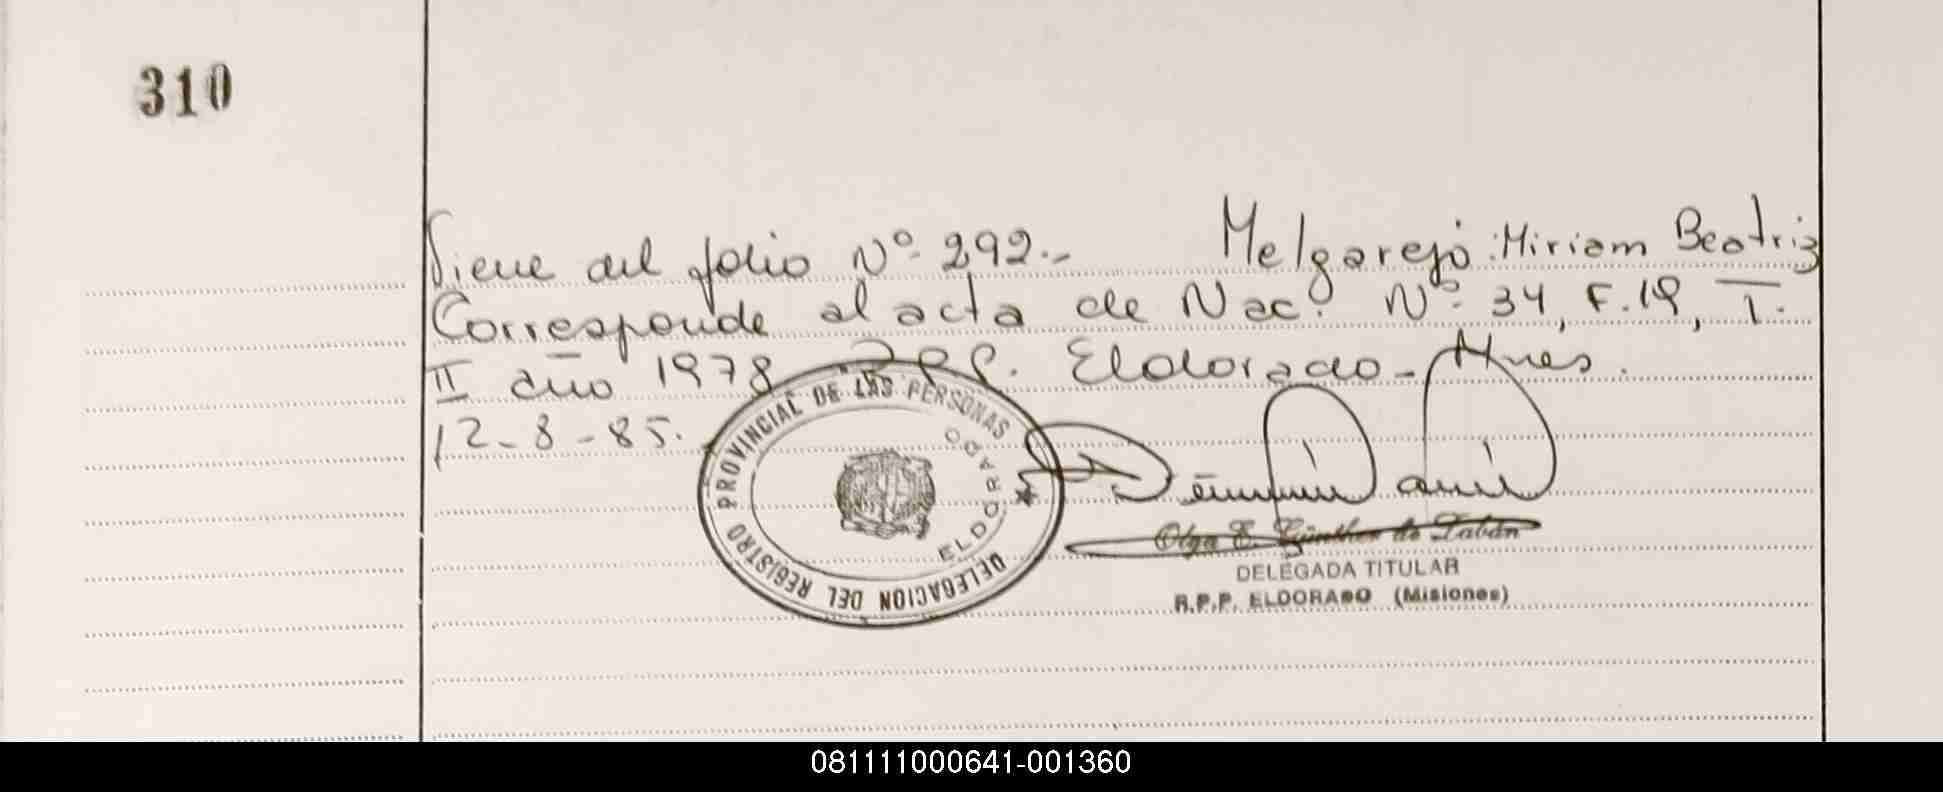 310
Viene del folio Nº 292.- Melgarejo: Miriam Beatriz
Corresponde al acta de Nac. Nº 34, F. 19, T.
II año 1978 Eldorado - Mnes.
12-8-85.
DELEGACION DEL REGISTRO PROVINCIAL DE LAS PERSONAS
ELDORADO
Olga E. Günther de Zabán
DELEGADA TITULAR
R.P.P. ELDORADO (Misiones)
081111000641-001360